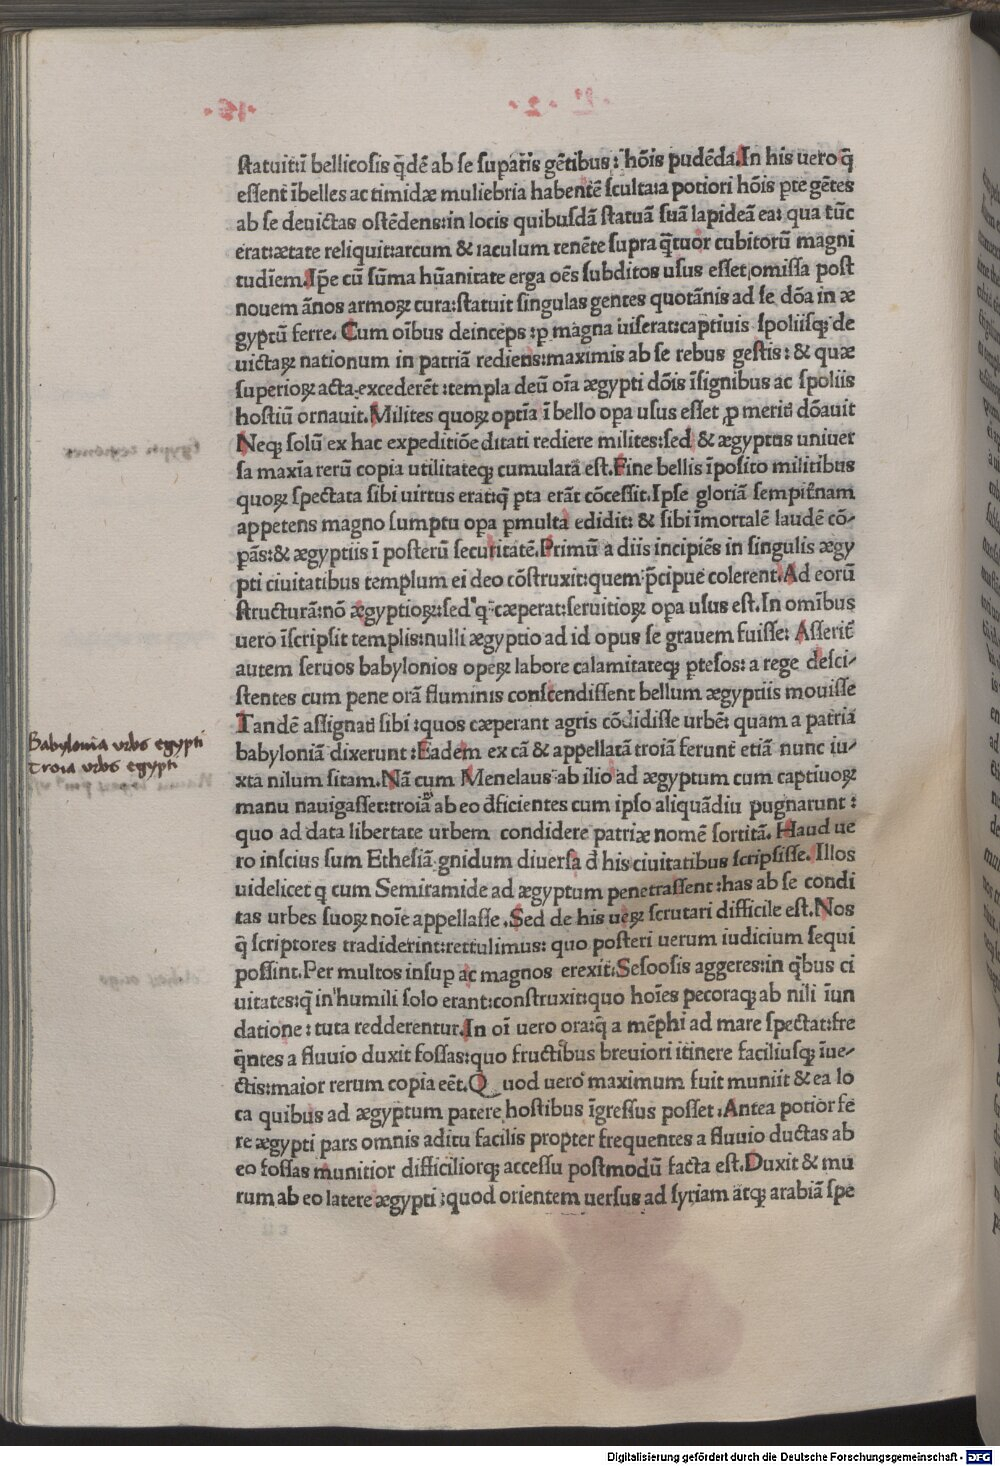 statuitū bellicosis q̄dē ab se supatis gētibus: hōis pudēda. In his uero q̄
essent ībelles ac timidæ muliebria habentē sculta: a potiori hōis pte gētes
ab se deuictas ostēdens: in locis quibusdā statuā suā lapideā ea: qua tūc
erat: ætate reliquit: arcum & iaculum tenēte supra q̄tuor cubitorū magni
tudīem. Ip̄e cū sūma hūanitate erga oēs subditos usus esset, omissa post
nouem ānos armoꝝ cura: statuit singulas gentes quotānis ad se dōa in æ
gyptū ferre. Cum oībus deinceps: p magna uiserat: captiuis spoliisqꝫ de
uictaꝝ nationum in patriā rediens: maximis ab se rebus gestis: & quæ
superioꝝ acta excederēt: templa deū oīa ægypti dōis īsignibus ac spoliis
hostiū ornauit. Milites quoꝝ optīa ī bello opa usus esset ꝓ meritū dōauit
Neqꝫ solū ex hac expeditiōe ditati rediere milites: sed & ægyptus uniuer
sa maxīa rerū copia utilitateqꝫ cumulata est. Fine bellis īposito militibus
quoꝝ spectata sibi uirtus erat: q̄ pta erāt cōcessit. Ipse gloriā sempiťnam
appetens magno sumptu opa pmulta edidit: & sibi īmortalē laudē cō-
pās: & ægyptiis ī posterū securitatē. Primū a diis incipiēs in singulis ægy
pti ciuitatibus templum ei deo cōstruxit: quem p̄cipue colerent. Ad eorū
structurā: nō ægyptioꝝ: sed q̄ cæperat: seruitioꝝ opa usus est. In omībus
uero īscripsit templis: nulli ægyptio ad id opus se grauem fuisse: Asserit
autem seruos babylonios opeꝝ labore calamitateqꝫ ptesos: a rege desci-
stentes cum pene orā fluminis conscendissent bellum ægyptiis mouisse
Tandē assignati sibi: quos cæperant agris cōdidisse urbē: quam a patria
babyloniā dixerunt: Eadem ex cā & appellatā troiā ferunt etiā nunc iu-
xta nilum sitam. Nā cum Menelaus ab ilio ad ægyptum cum captiuoꝝ
manu nauigasset: troiā ab eo d̄ficientes cum ipso aliquādiu pugnarunt:
quo ad data libertate urbem condidere patriæ nomē sortitā. Haud ue
ro inscius sum Ethesiā gnidum diuersa d̄ his ciuitatibus scripsisse. Illos
uidelicet q̄ cum Semiramide ad ægyptum penetrassent: has ab se condi
tas urbes suoꝝ noīe appellasse. Sed de his ueꝝ scrutari difficile est. Nos
q̄ scriptores tradiderint: rettulimus: quo posteri uerum iudicium sequi
possint. Per multos insup ac magnos erexit Sesoosis aggeres: in q̄bus ci
uitates: q̄ in humili solo erant: construxit: quo hoīes pecoraqꝫ ab nili īun
datione: tuta redderentur. In oī uero ora: q̄ a mēphi ad mare spectat: fre
q̄ntes a fluuio duxit fossas: quo fructibus breuiori itinere faciliusqꝫ īue-
ctis: maior rerum copia eēt. Quod uero maximum fuit muniit & ea lo
ca quibus ad ægyptum patere hostibus īgressus posset: Antea potior fe
re ægypti pars omnis aditu facilis propter frequentes a fluuio ductas ab
eo fossas munitior difficiliorqꝫ accessu postmodū facta est. Duxit & mu
rum ab eo latere ægypti: quod orientem uersus ad syriam atqꝫ arabiā spe
Babylonia vrbs egypti
Troia vrbs egypti
Digitalisierung gefördert durch die Deutsche Forschungsgemeinschaft - DFG